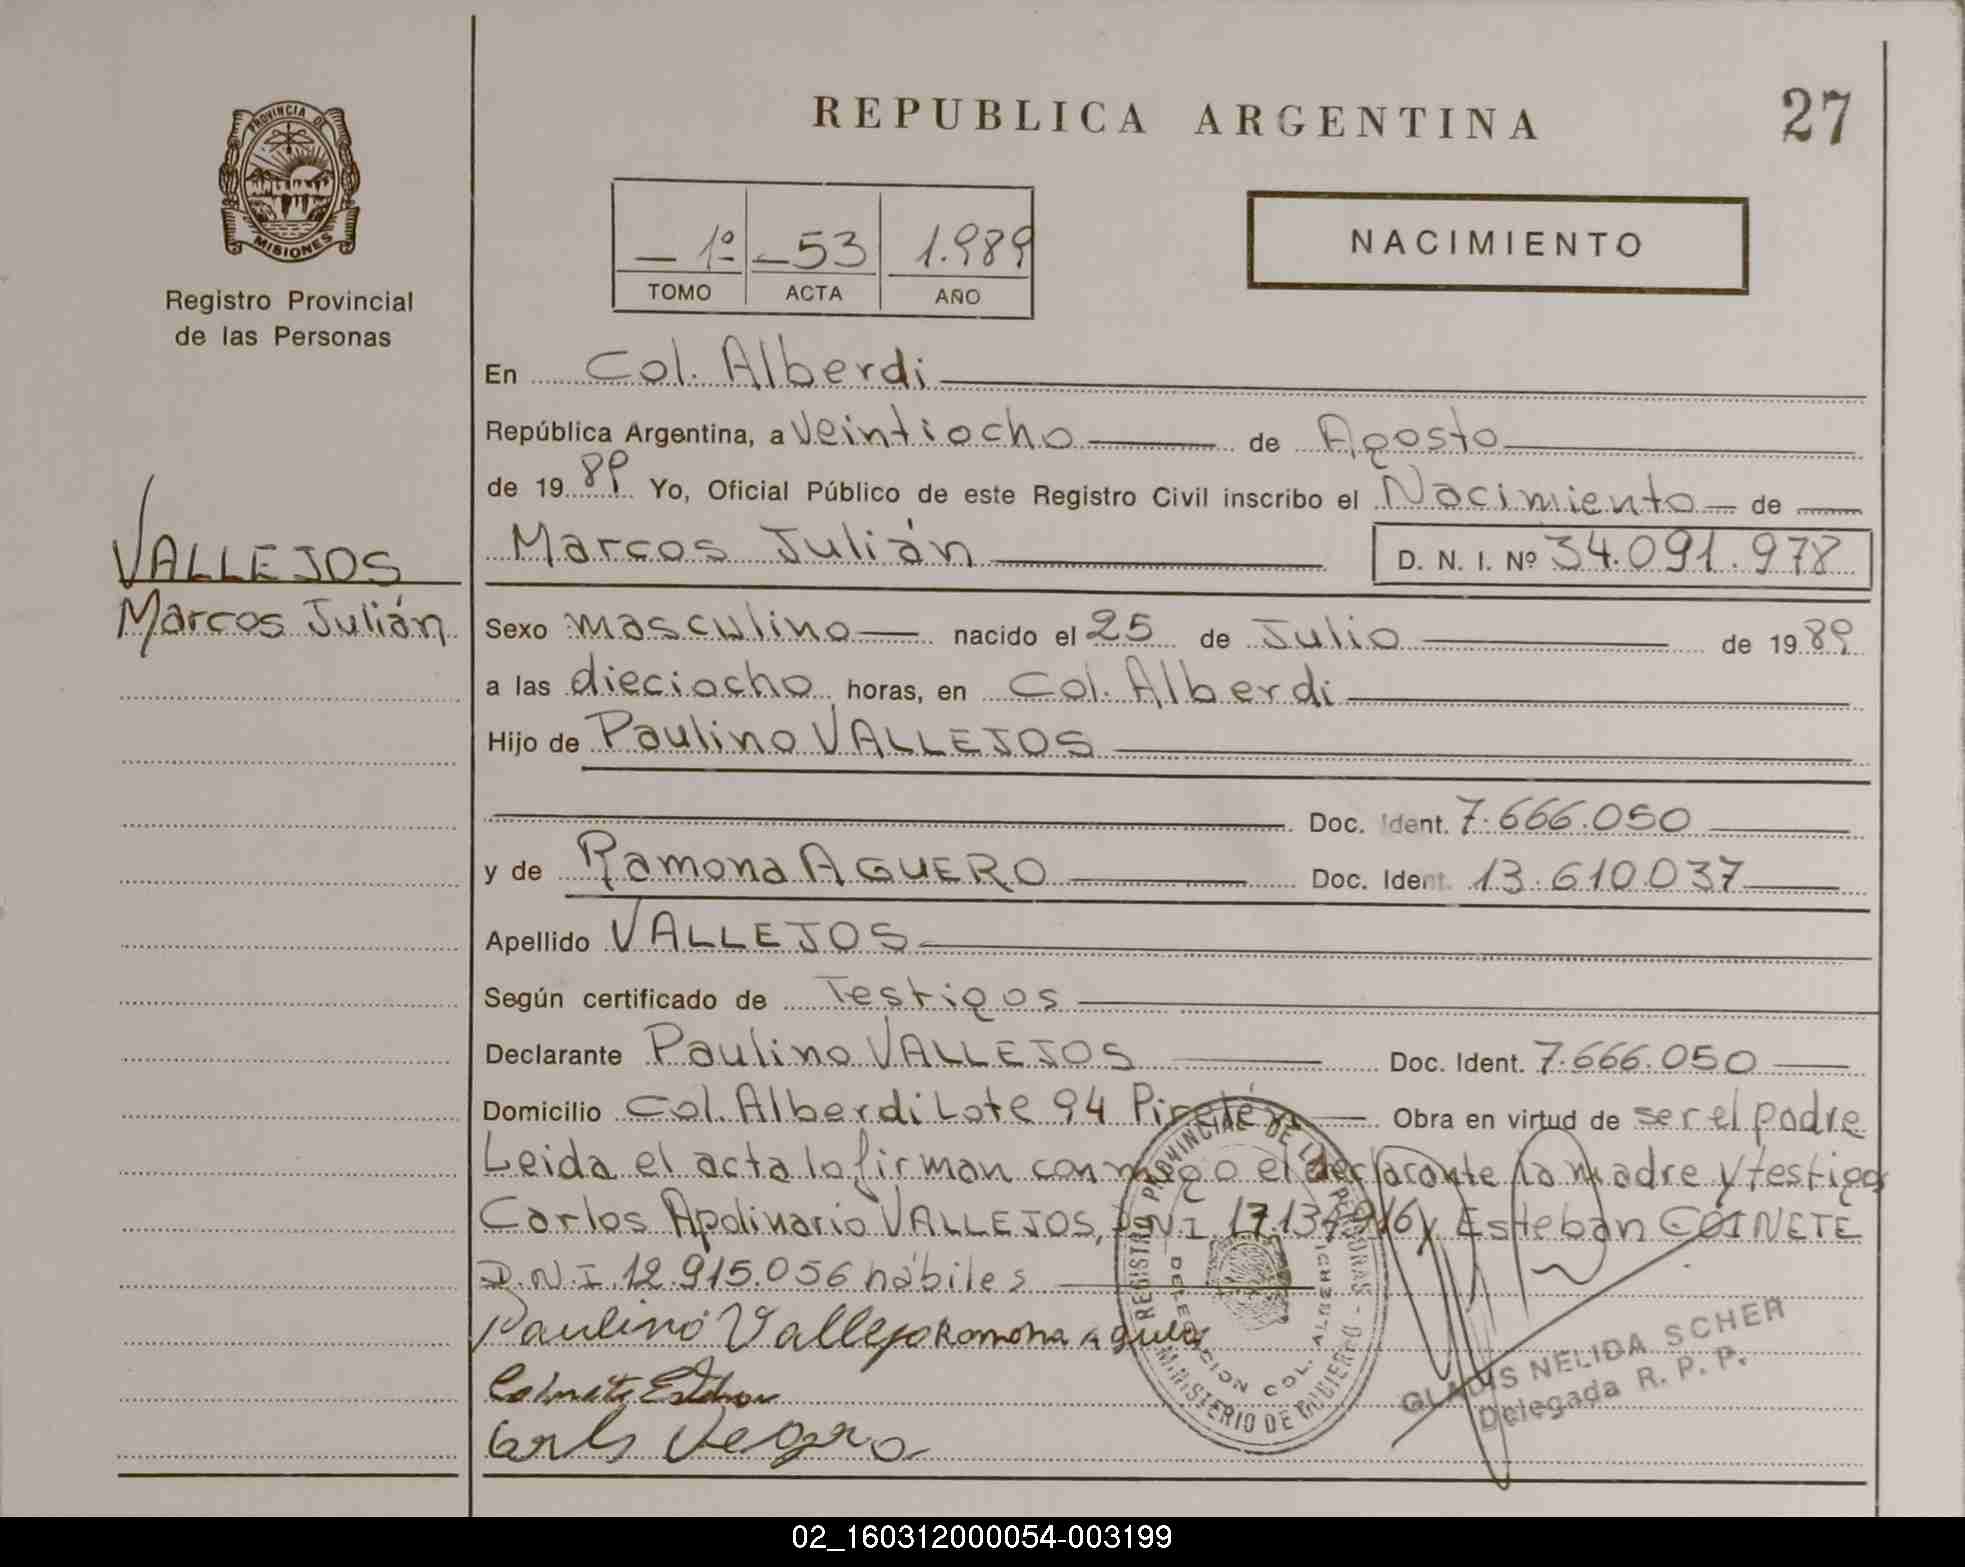 PROVINCIA DE
MISIONES
Registro Provincial
de las Personas
VALLEJOS
Marcos Julián
REPUBLICA ARGENTINA
27
1º 53 1.989
TOMO ACTA AÑO
NACIMIENTO
En Col. Alberdi
República Argentina, a veintiocho de Agosto
de 1989 Yo, Oficial Público de este Registro Civil inscribo el Nacimiento de
Marcos Julián D. N. I. Nº 34.091.978
Sexo masculino nacido el 25 de Julio de 1989
a las dieciocho horas, en Col. Alberdi
Hijo de Paulino VALLEJOS
Doc. Ident. 7.666.050
y de Ramona AGUERO Doc. Ident. 13.610.037
Apellido VALLEJOS
Según certificado de Testigos
Declarante Paulino VALLEJOS Doc. Ident. 7.666.050
Domicilio Col. Alberdi Lote 94 Obra en virtud de ser el padre
Leida el acta la firman conmigo el declarante la madre y testigos
Carlos Apolinario VALLEJOS, D.N.I. y Esteban COINETE
D.N.I. 12.915.056 hábiles
Paulino Vallejo Ramona aguero
Esteban
REGISTRO PROVINCIAL DE LAS PERSONAS - MINISTERIO DE GOBIERNO
DELEGACION COL. ALBERDI
GLADIS NELIDA SCHER
Delegada R. P. P.
02_160312000054-003199